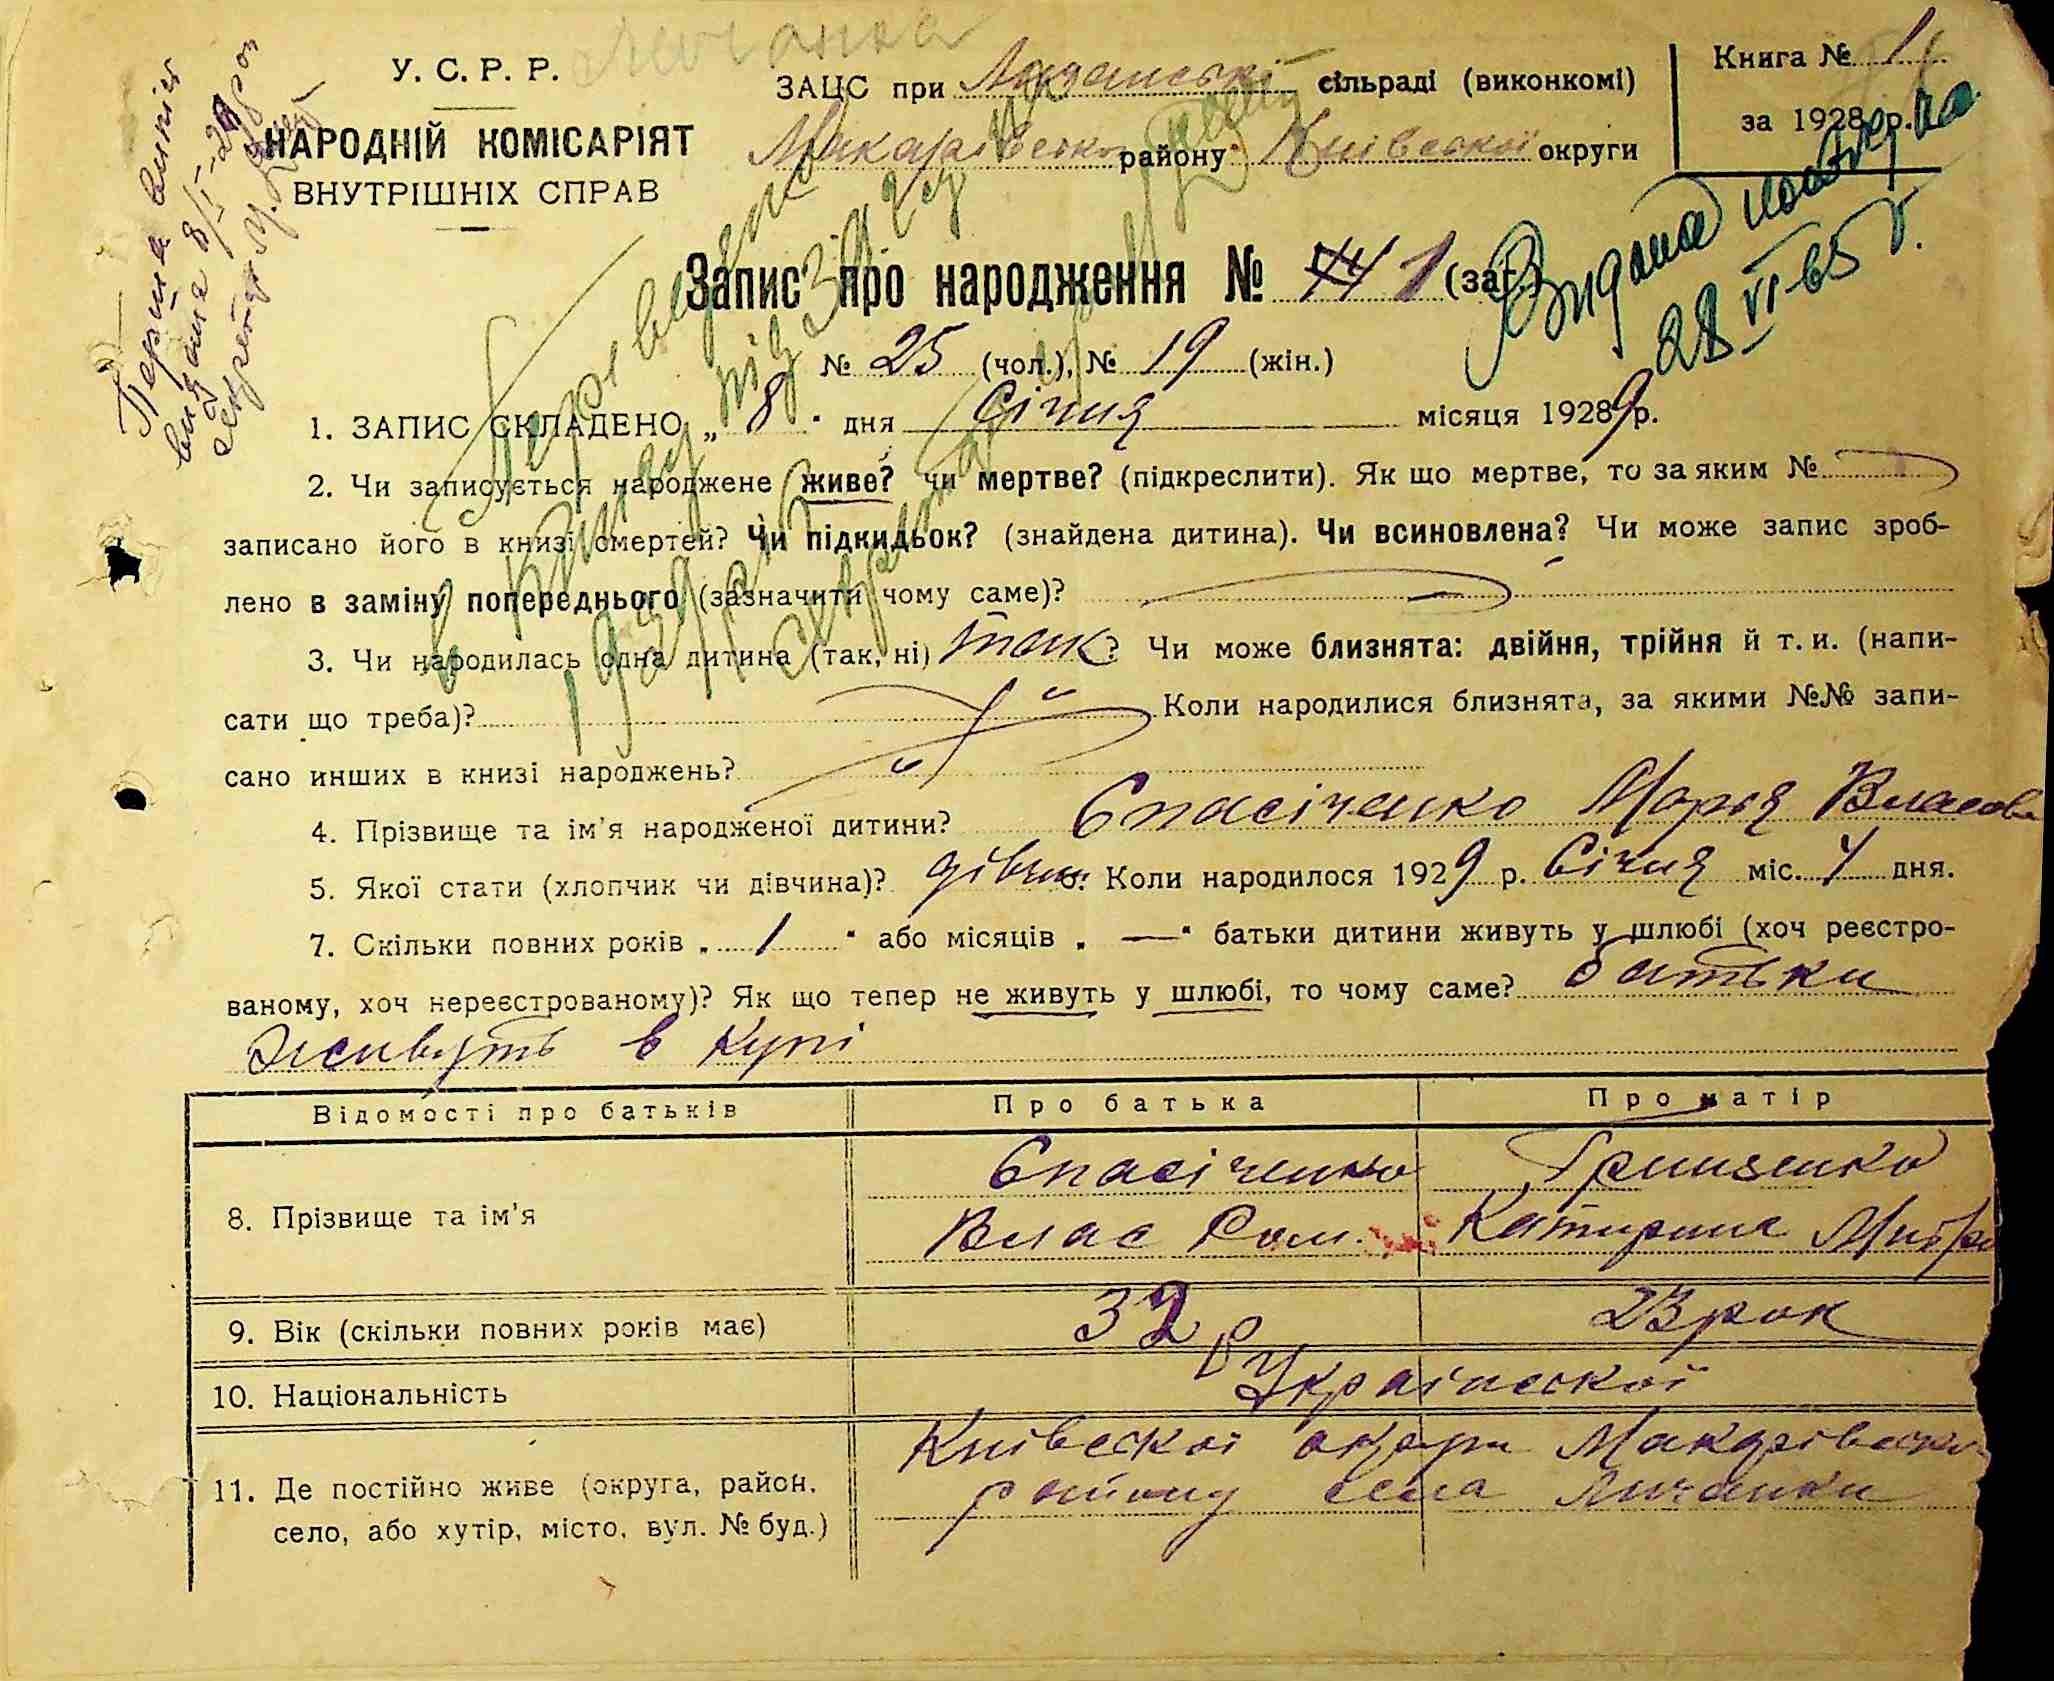 Личанка
У. С. Р. Р.
НАРОДНІЙ КОМІСАРІЯТ
ВНУТРІШНІХ СПРАВ
ЗАЦС при сільраді (виконкомі)
Макарівсько району Київської округи
Книга № 1
за 1928 р.
Перша випис
видана 8/I-29 р
секретар
Видана повторна
28 VI-65 г.
Запис про народження № 44 1 (заг.)
№ 25 (чол.), № 19 (жін.)
Переведено
під № 1
в книгу
1929 р.
Секретар
1. ЗАПИС СКЛАДЕНО „ 8 “ дня Січня місяця 19289 р.
2. Чи записується народжене живе? чи мертве? (підкреслити). Як що мертве, то за яким №
записано його в книзі смертей? Чи підкидьок? (знайдена дитина). Чи всиновлена? Чи може запис зроб-
лено в заміну попереднього (зазначити чому саме)? —
3. Чи народилась одна дитина (так, ні) так? Чи може близнята: двійня, трійня й т. и. (напи-
сати що треба)? Коли народилися близнята, за якими №№ запи-
сано инших в книзі народжень?
4. Прізвище та ім'я народженої дитини? Спасіченко Марія Власов
5. Якої стати (хлопчик чи дівчина)? дівчи 6. Коли народилося 1929 р. Січня міс. 4 дня.
7. Скільки повних років „ 1 “ або місяців „ — “ батьки дитини живуть у шлюбі (хоч реєстро-
ваному, хоч нереєстрованому)? Як що тепер не живуть у шлюбі, то чому саме? батьки
живуть в купі
Відомості про батьків Про батька Про матір
8. Прізвище та ім'я Спасіченко Гриценко
Влас Ром. Катирина Митр
9. Вік (скільки повних років має) 32 р 23 рок
10. Національність Украінскої
11. Де постійно живе (округа, район, Київскої округи Макарівско
село, або хутір, місто, вул. № буд.) району села Личанки